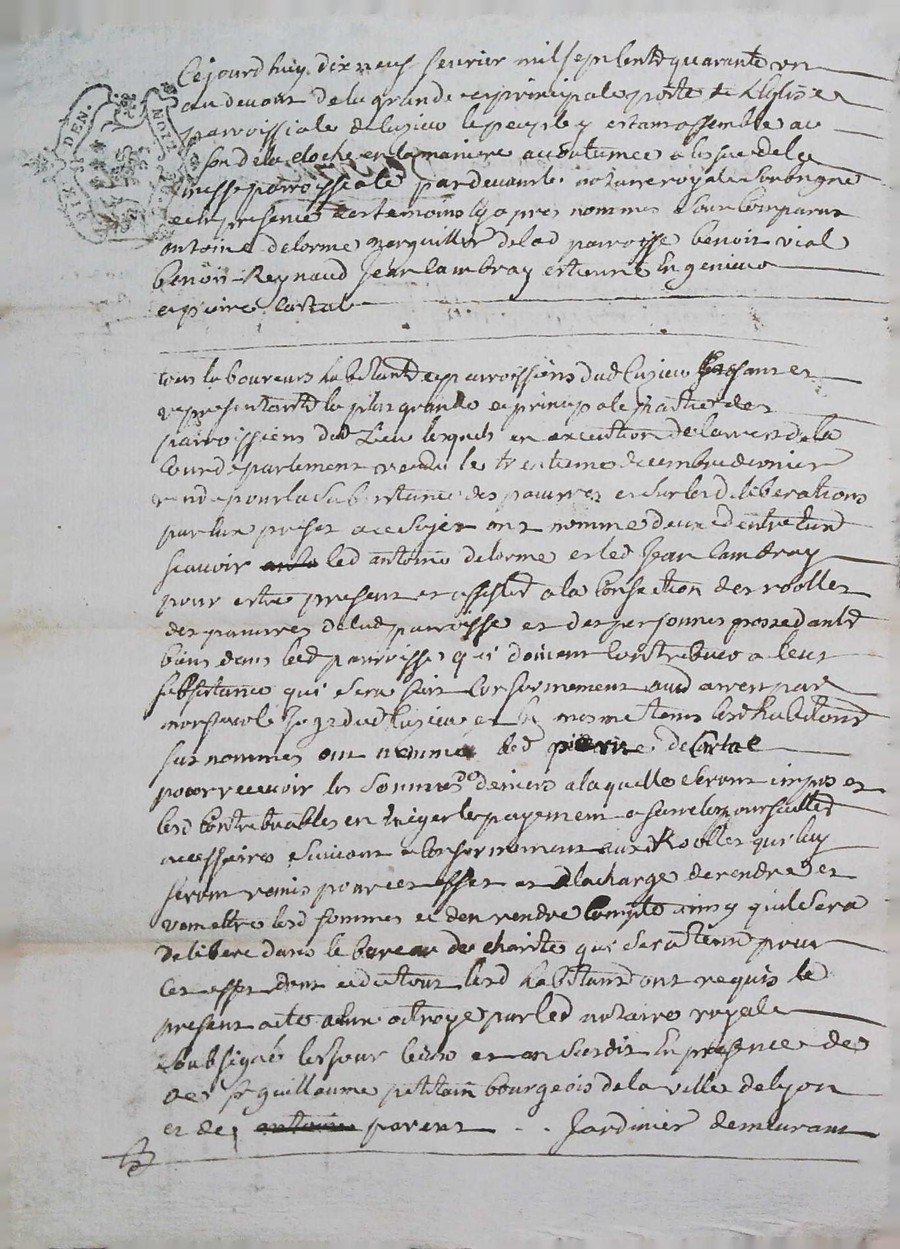 Cejourdhuy dix neuf fevrier mil sept cent quarante un
au devant de la grande et principale porte de l'Eglise
parroissiale de luzieu le peuple y estant assemble au
son de la cloche en la maniere accoutumee a lissue de la
messe parroissiale pardevant le notaire royal soussigné
et en presence des temoins cy apres nommes sont comparus
antoine delorme marguillier de lad parroisse benoit vial
benoit Reynaud Jean lambray estienne
et pierre
tous laboureurs habitants et parroissiens dud luzieu faisant et
representants la plus grande et principale partie des
parroissiens dud Lieu lesquels en execution de larrest de la
Cour de parlement rendu le trentieme decembre dernier
rendu pour la subsistance des pauvres et sur les deliberations
par eux prises a ce sujet ont nomme deux dentre eux
scavoir led antoine delorme et led Jean lambray
pour estre present et assister a la confection des roolles
des pauvres de lad parroisse et des personnes possedants
biens dans lad parroisse qui doivent contribuer a leur
subsistance qui sera fait conformement aud arrest par
monsieur le Juge dud luzieu et en mesme temps lesd habitants
sus nommes ont nommé led pierre
pour recevoir les sommes de deniers a laquelle seront imposes
lesd contribuables en exiger le payement faire les poursuittes
necessaires suivant et conformement auxd Roolles qui luy
seront remis pour cet effet et a la charge de rendre et
remettre lesd sommes et den rendre compte ainsy quil sera
delibere dans le bureau de charite qui sera tenu pour
cet effet dont et de tout lesd habitants ont requis le
present acte a eux octroye par led notaire royal
soubsigné les jour lieu et an susdit En presence de
de sr guillaume petitain bourgeois de la ville de lyon
et de parent - . . Jardinier demeurant